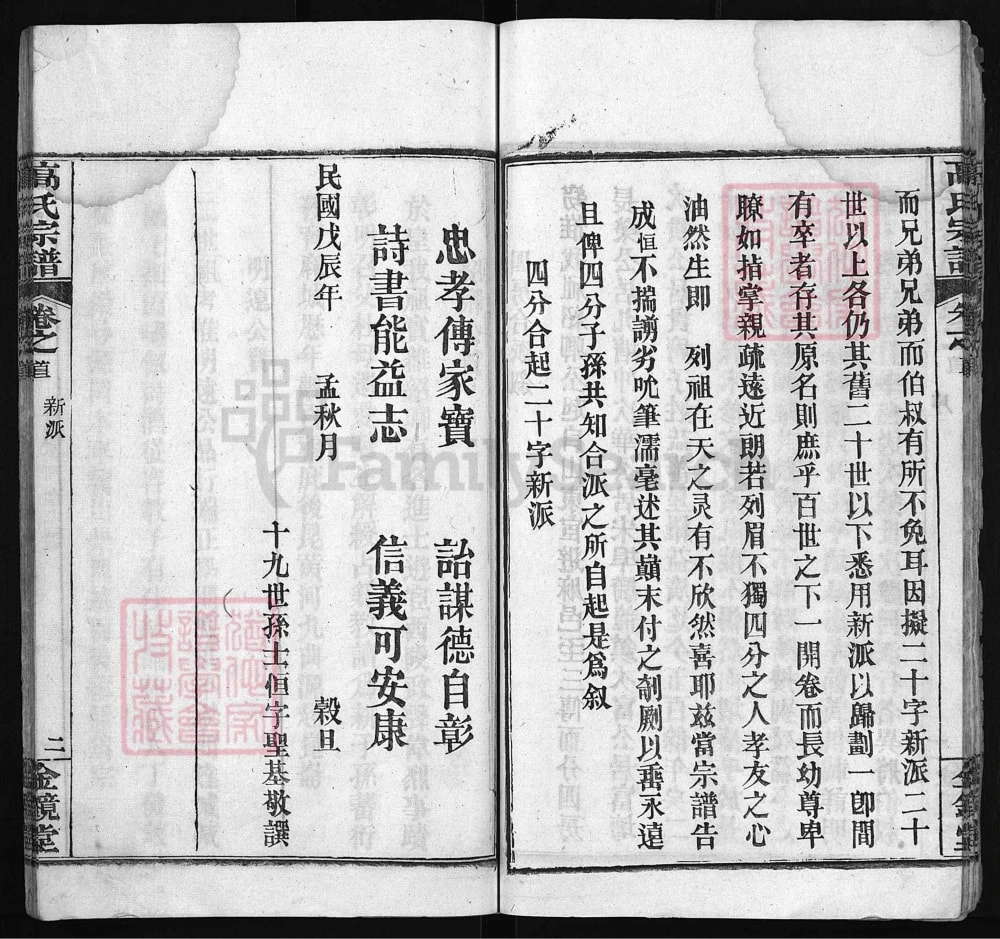 而兄弟兄弟而伯叔有所不免耳因擬二十字新派二十
世以上各仍其舊二十世以下悉用新派以歸劃一卽間
有卒者存其原名則庶乎百世之下一開卷而長幼尊卑
瞭如指掌親疏遠近朗若列眉不獨四分之人孝友之心
油然生即 列祖在天之灵有不欣然喜耶兹當宗譜告
成恒不揣謭劣吮筆濡毫述其顛末付之剞劂以垂永遠
且俾四分子孫共知合派之所自起是爲叙
四分合起二十字新派
忠孝傳家寶 詒謀德自彰
詩書能益志 信義可安康
民國戊辰年 孟秋月 穀旦
十九世孫士恒字聖基敬譔
高氏宗譜 卷之首 新派 三 金鏡堂
FamilySearch